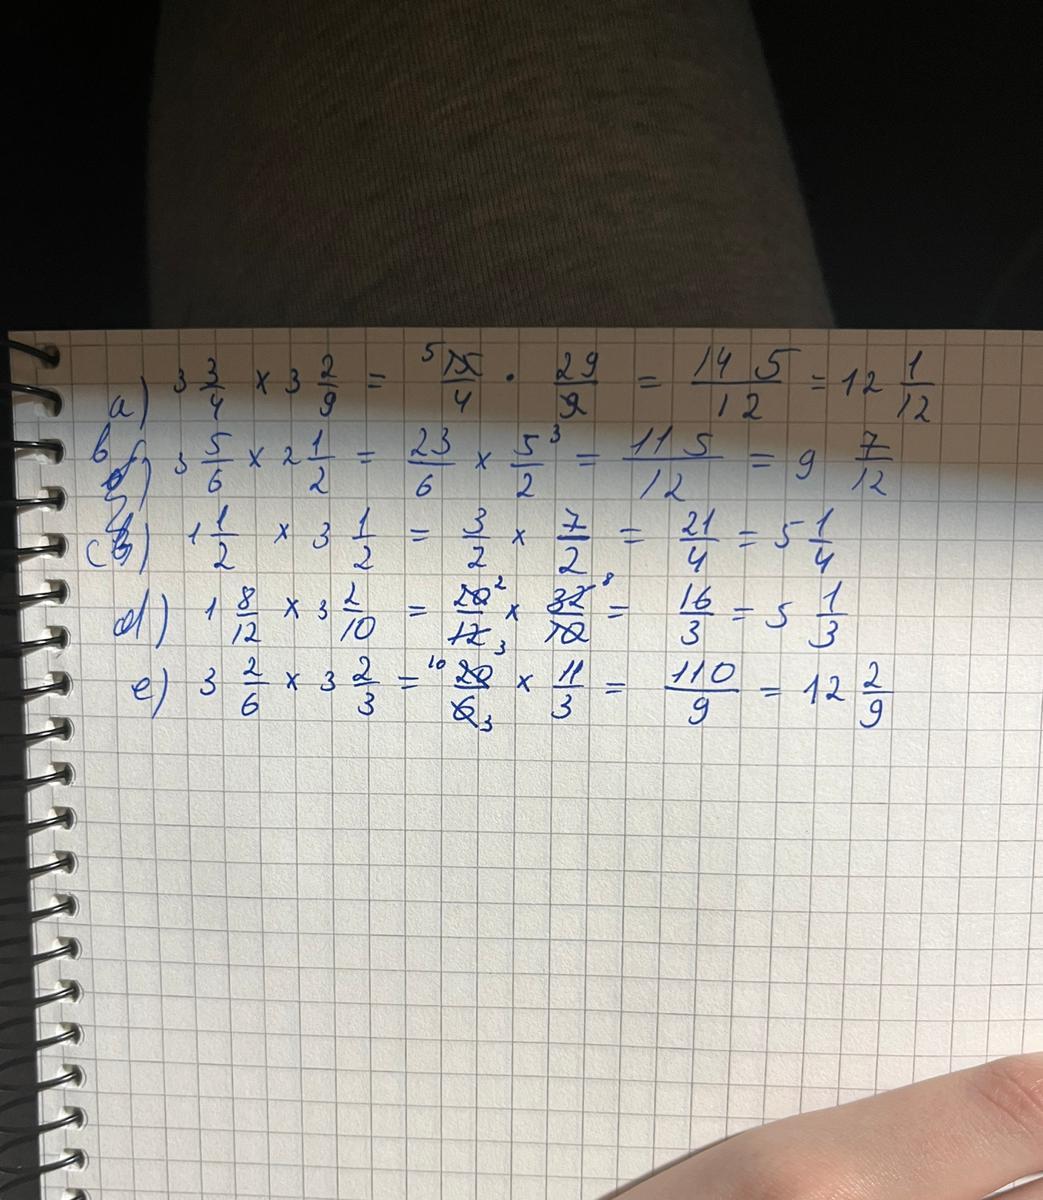 a) 3 3/4 × 3 2/9 = 5 15/4 · 29/9 = 145/12 = 12 1/12
b) 3 5/6 × 2 1/2 = 23/6 × 5/2 3 = 115/12 = 9 7/12
c) 1 1/2 × 3 1/2 = 3/2 × 7/2 = 21/4 = 5 1/4
d) 1 8/12 × 3 2/10 = 20 2/12 3 × 32 8/10 = 16/3 = 5 1/3
e) 3 2/6 × 3 2/3 = 10 20/6 3 × 11/3 = 110/9 = 12 2/9